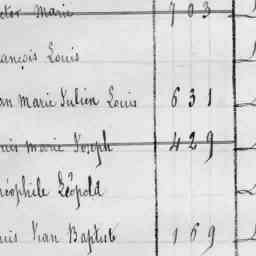 ctor Marie 703
rançois Louis
an Marie Julien Louis 631
uis marie Joseph 429
héophile Léopold
uis Jean Baptist 169